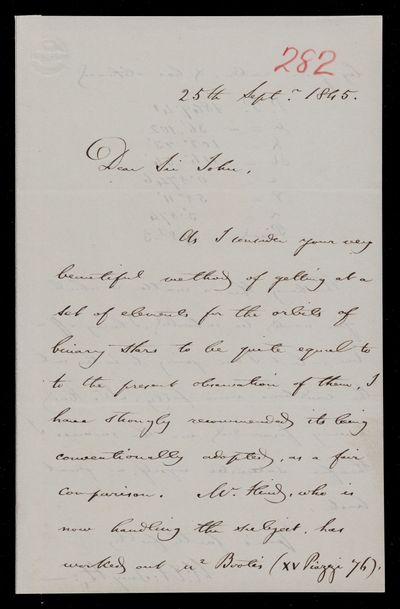 282
25th Sept.r 1845.
Dear Sir John,
As I consider your very
beautiful method of getting at a
set of elements for the orbits of
binary stars to be quite equal to
to the present observation of them, I
have strongly recommended its being
conventionally adopted, as a fair
comparison. Mr. Hind, who is
now handling the subject, has
worked out μ2 Bootis (XV Piazzi 76),